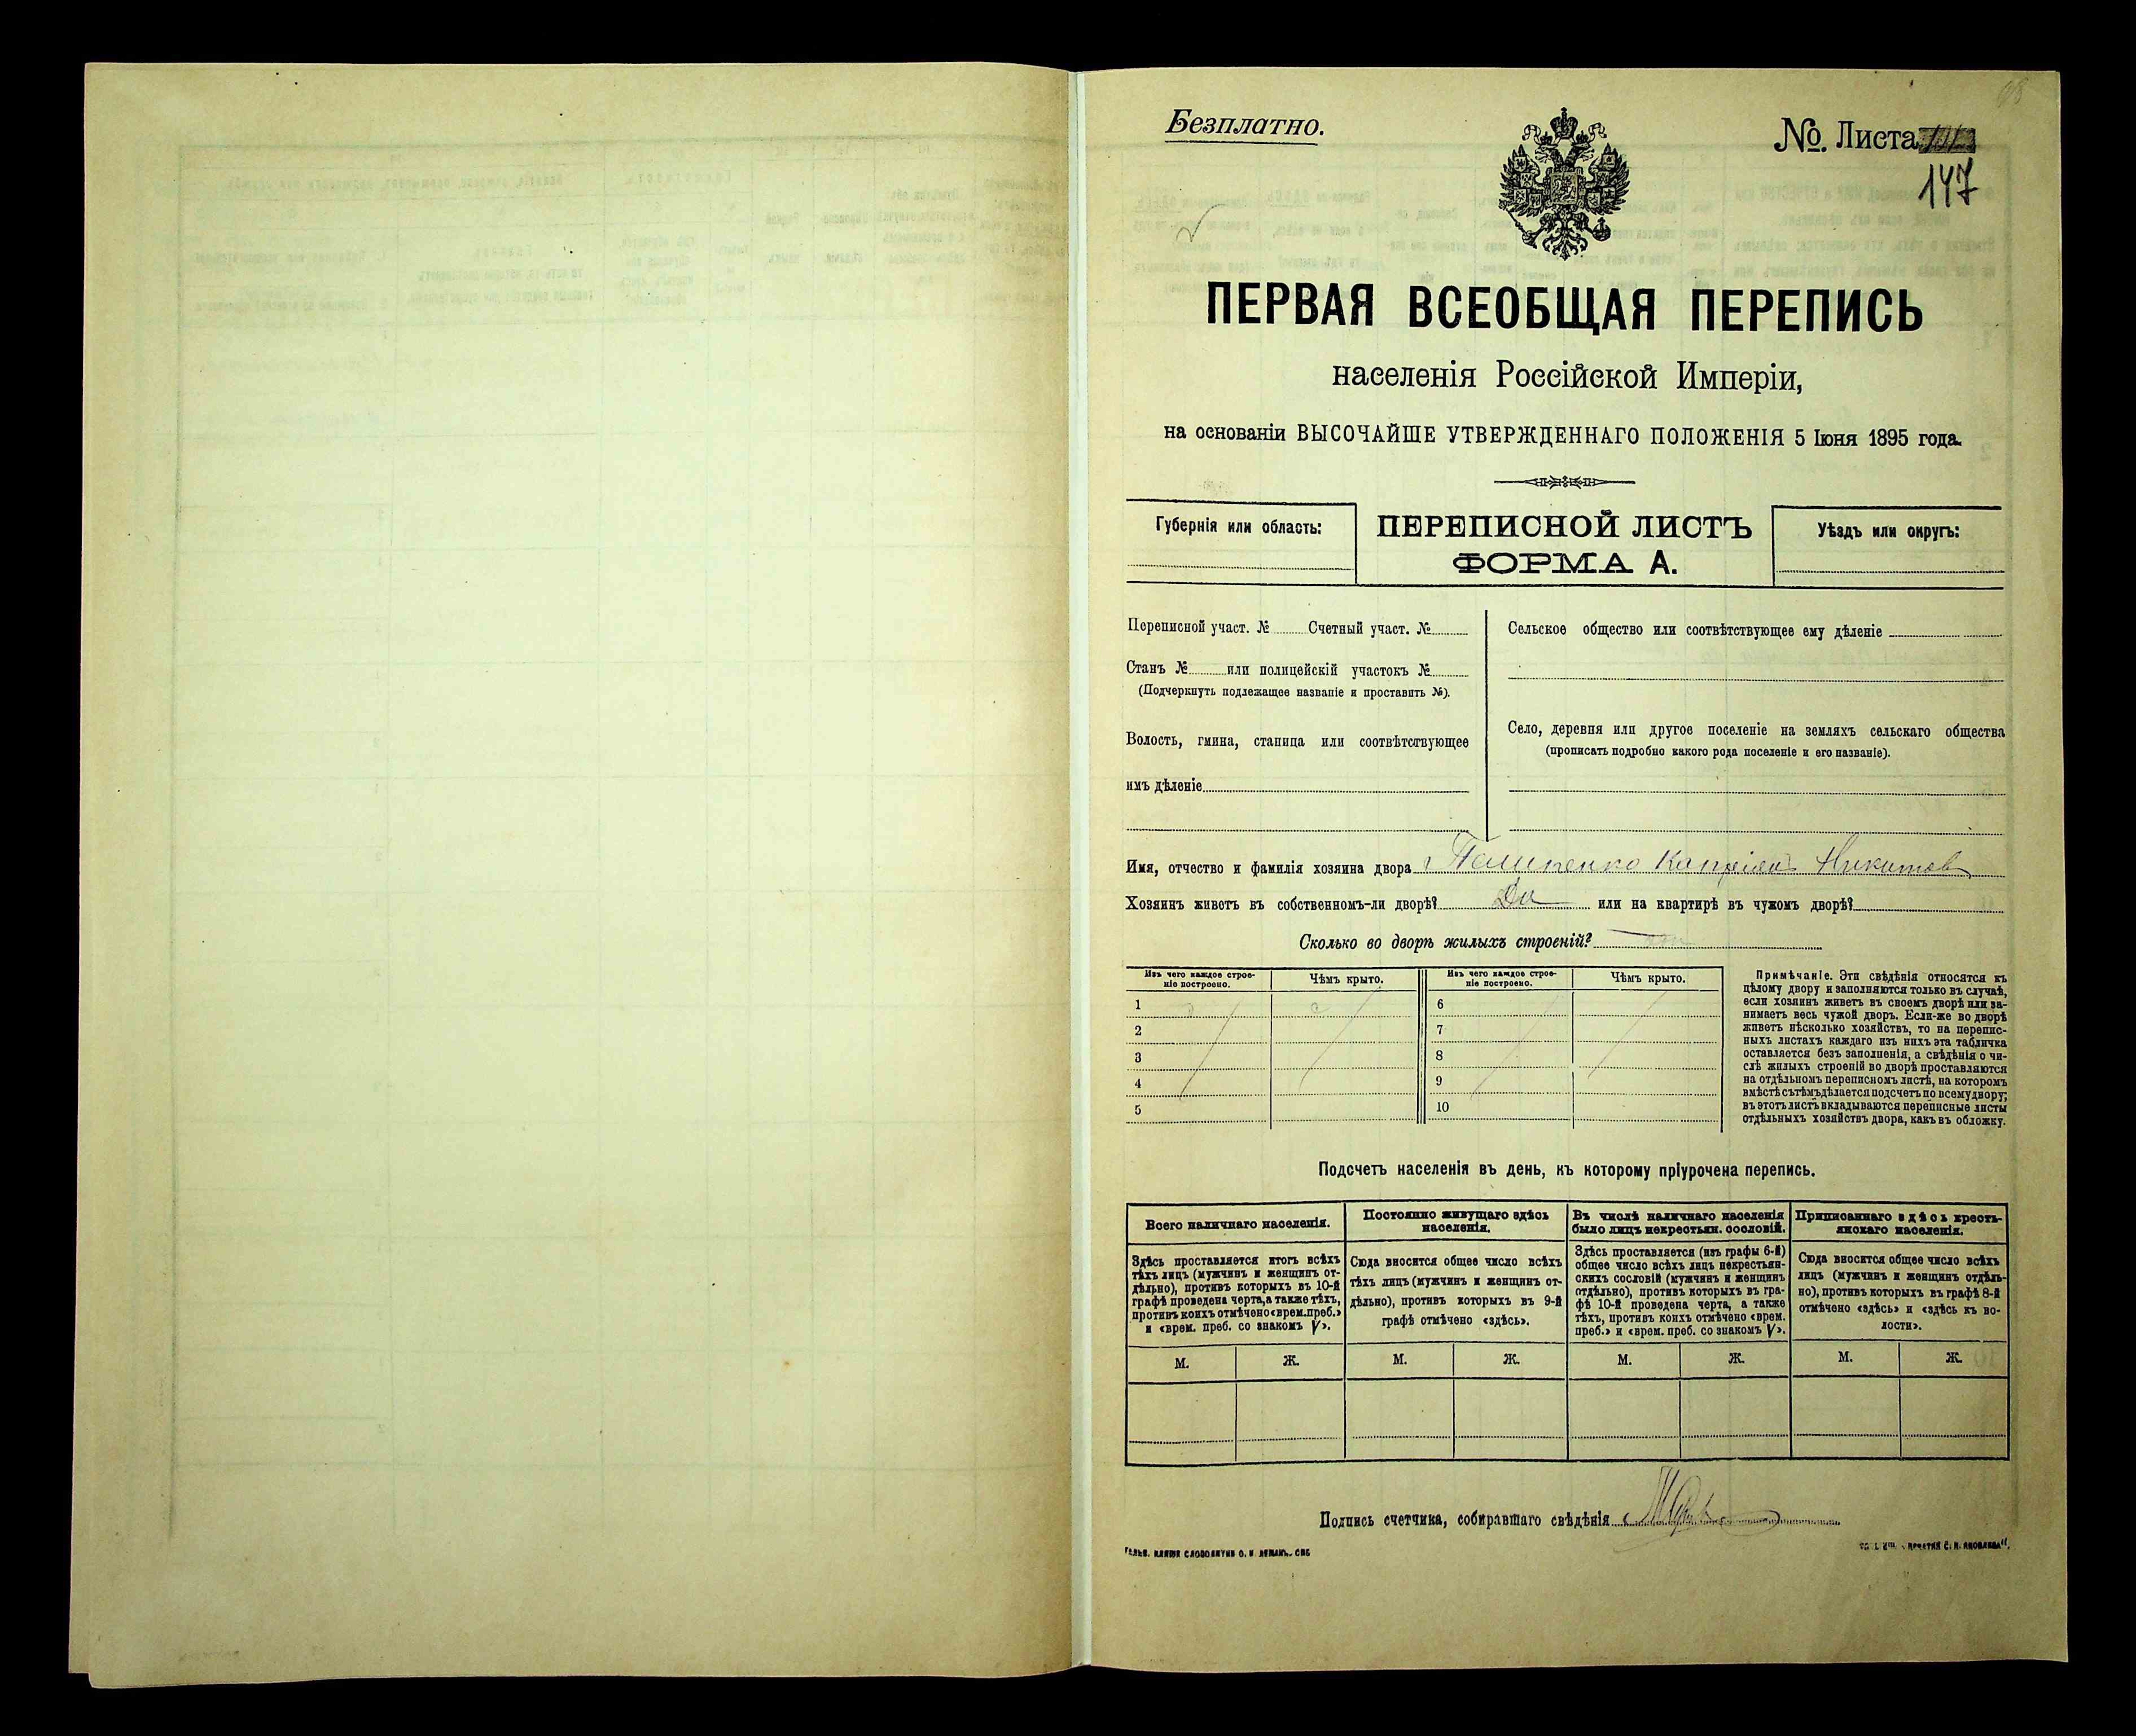 Безплатно.
№. Листа
147
ПЕРВАЯ ВСЕОБЩАЯ ПЕРЕПИСЬ
населенія Россійской Имперіи,
на основаніи ВЫСОЧАЙШЕ УТВЕРЖДЕННАГО ПОЛОЖЕНІЯ 5 Іюня 1895 года.
Губернія или область:
ПЕРЕПИСНОЙ ЛИСТЪ
ФОРМА А.
Уѣздъ или округъ:
Переписной участ. № Счетный участ. №
Станъ № или полицейскій участокъ №
(Подчеркнуть подлежащее названіе и проставить №).
Волость, гмина, станица или соотвѣтствующее
имъ дѣленіе
Сельское общество или соотвѣтствующее ему дѣленіе
Село, деревня или другое поселеніе на земляхъ сельскаго общества
(прописать подробно какого рода поселеніе и его названіе).
Имя, отчество и фамилія хозяина двора Никитов
Хозяинъ живетъ въ собственномъ-ли дворѣ? Да или на квартирѣ въ чужомъ дворѣ?
Сколько во дворѣ жилыхъ строеній?
Изъ чего каждое строе-
ніе построено.
Чѣмъ крыто.
Изъ чего каждое строе-
ніе построено.
Чѣмъ крыто.
1
2
3
4
5
6
7
8
9
10
Примѣчаніе. Эти свѣдѣнія относятся къ
цѣлому двору и заполняются только въ случаѣ,
если хозяинъ живетъ въ своемъ дворѣ или за-
нимаетъ весь чужой дворъ. Если-же во дворѣ
живетъ нѣсколько хозяйствъ, то на перепис-
ныхъ листахъ каждаго изъ нихъ эта табличка
оставляется безъ заполненія, а свѣдѣнія о чи-
слѣ жилыхъ строеній во дворѣ проставляются
на отдѣльномъ переписномъ листѣ, на которомъ
вмѣстѣ съ тѣмъ дѣлается подсчетъ по всему двору;
въ этотъ листъ вкладываются переписные листы
отдѣльныхъ хозяйствъ двора, какъ въ обложку.
Подсчетъ населенія въ день, къ которому пріурочена перепись.
Всего наличнаго населенія.
Постоянно живущаго здѣсь
населенія.
Въ числѣ наличнаго населенія
было лицъ некрестьян. сословій.
Приписаннаго здѣсь кресть-
янскаго населенія.
Здѣсь проставляется итогъ всѣхъ
тѣхъ лицъ (мужчинъ и женщинъ от-
дѣльно), противъ которыхъ въ 10-й
графѣ проведена черта, а также тѣхъ,
противъ коихъ отмѣчено «врем. преб.»
и «врем. преб. со знакомъ V».
Сюда вносится общее число всѣхъ
тѣхъ лицъ (мужчинъ и женщинъ от-
дѣльно), противъ которыхъ въ 9-й
графѣ отмѣчено «здѣсь».
Здѣсь проставляется (изъ графы 6-й)
общее число всѣхъ лицъ некрестьян-
скихъ сословій (мужчинъ и женщинъ
отдѣльно), противъ которыхъ въ гра-
фѣ 10-й проведена черта, а также
тѣхъ, противъ коихъ отмѣчено «врем.
преб.» и «врем. преб. со знакомъ V».
Сюда вносится общее число всѣхъ
лицъ (мужчинъ и женщинъ отдѣль-
но), противъ которыхъ въ графѣ 8-й
отмѣчено «здѣсь» и «здѣсь къ во-
лости».
М. Ж. М. Ж. М. Ж. М. Ж.
Подпись счетчика, собиравшаго свѣдѣнія